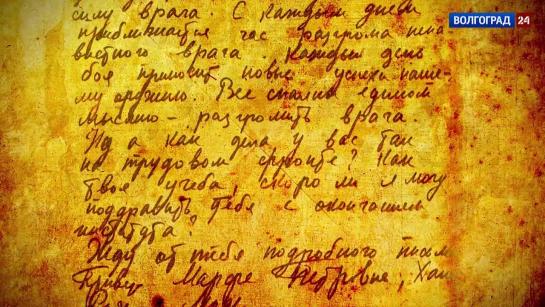 ВОЛГОГРАД 24
силу врага. С каждым днем
приближается час разгрома нена
вистного врага. Каждый день
боя приносит новые успехи наше-
му оружию. Все спаяны единой
мыслью – разгромить врага.
Ну а как дела у вас там
на трудовом фронте? Как
твоя учеба, скоро ли я могу
поздравить тебя с окончанием
института?
Жду от тебя подробного письм
Привет Марфе Петровне,